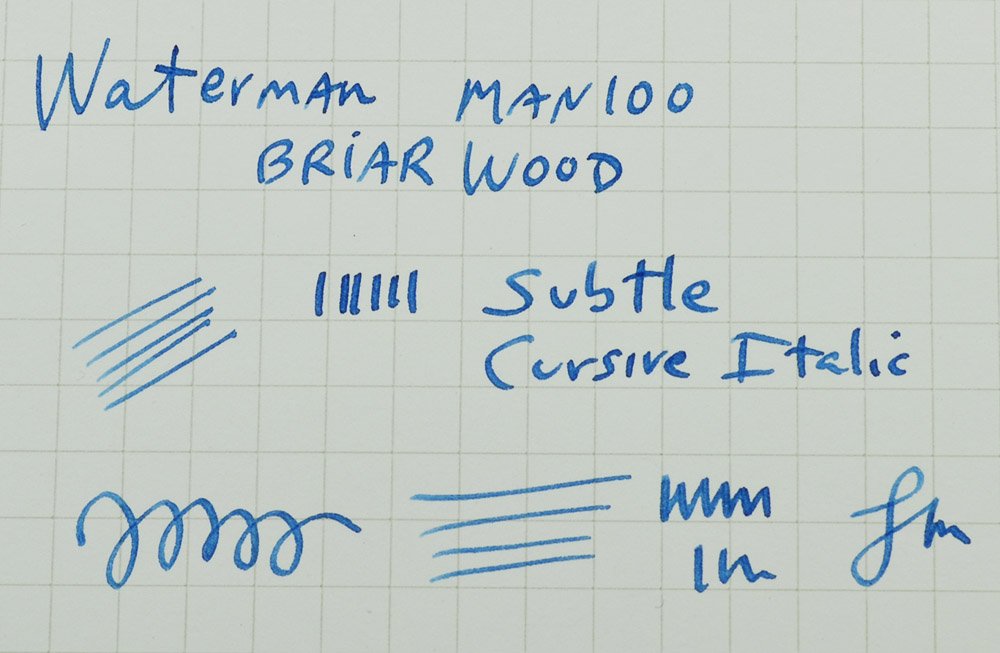 Waterman MAN100
BRiAR WOOD
Subtle
Cursive Italic